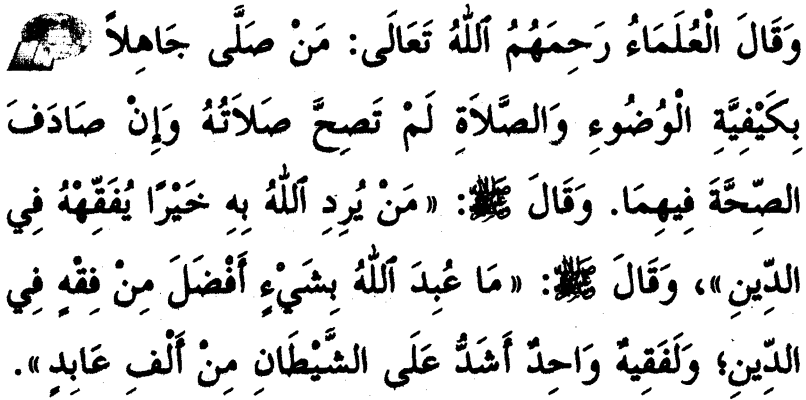 وَقَالَ الْعُلَمَاءُ رَحِمَهُمُ ٱللهُ تَعَالَى: مَنْ صَلَّى جَاهِلاً
بِكَيْفِيَّةِ الْوُضُوءِ وَالصَّلاَةِ لَمْ تَصِحَّ صَلاَتُهُ وَإِنْ صَادَفَ
الصِّحَّةَ فِيهِمَا. وَقَالَ ﷺ: «مَنْ يُرِدِ ٱللهُ بِهِ خَيْرًا يُفَقِّهْهُ فِي
الدِّينِ»، وَقَالَ ﷺ: «مَا عُبِدَ ٱللهُ بِشَيْءٍ أَفْضَلَ مِنْ فِقْهٍ فِي
الدِّينِ؛ وَلَفَقِيهٌ وَاحِدٌ أَشَدُّ عَلَى الشَّيْطَانِ مِنْ أَلْفِ عَابِدٍ».